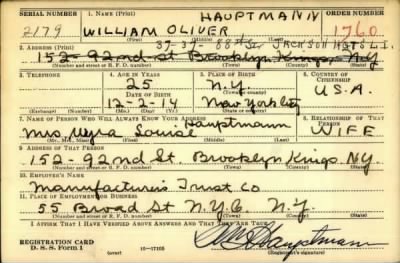 SERIAL NUMBER 1. NAME (Print) ORDER NUMBER
2179 WILLIAM OLIVER HAUPTMANN 1760
2. ADDRESS (Print) 37-37-88th St JACKSON HGTS L.I.
152-92nd St Brooklyn Kings N.Y.
(Number and street or R. F. D. number) (Town) (County) (State)
3. TELEPHONE 4. AGE IN YEARS 5. PLACE OF BIRTH 6. COUNTRY OF CITIZENSHIP
25 N.Y.
DATE OF BIRTH (Town or county)
12-2-14 New York City U.S.A.
(Exchange) (Number) (Mo.) (Day) (Yr.) (State or country)
7. NAME OF PERSON WHO WILL ALWAYS KNOW YOUR ADDRESS RELATIONSHIP OF THAT PERSON
Mrs. Louise Hauptmann WIFE
(Mr., Mrs., Miss) (First) (Middle) (Last)
9. ADDRESS OF THAT PERSON
152-92nd St. Brooklyn Kings N.Y.
(Number and street or R. F. D. number) (Town) (County) (State)
10. EMPLOYER'S NAME
Manufacturers Trust Co
11. PLACE OF EMPLOYMENT OR BUSINESS
55 Broad St N.Y.C. N.Y.
(Number and street or R. F. D. number) (Town) (County) (State)
I AFFIRM THAT I HAVE VERIFIED ABOVE ANSWERS AND THAT THEY ARE TRUE.
REGISTRATION CARD Hauptmann
D. S. S. Form 1 (over) 16-17105 (Registrant's signature)